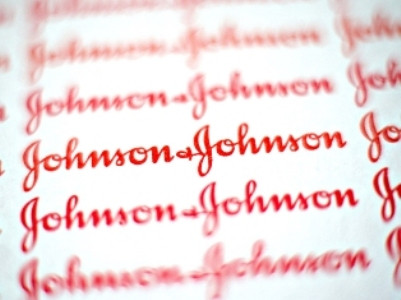 Johnson & Johnson
Johnson & Johnson Joh
Johnson & Johnson Jo
Johnson & Johnson Jo
Johnson & Johnson